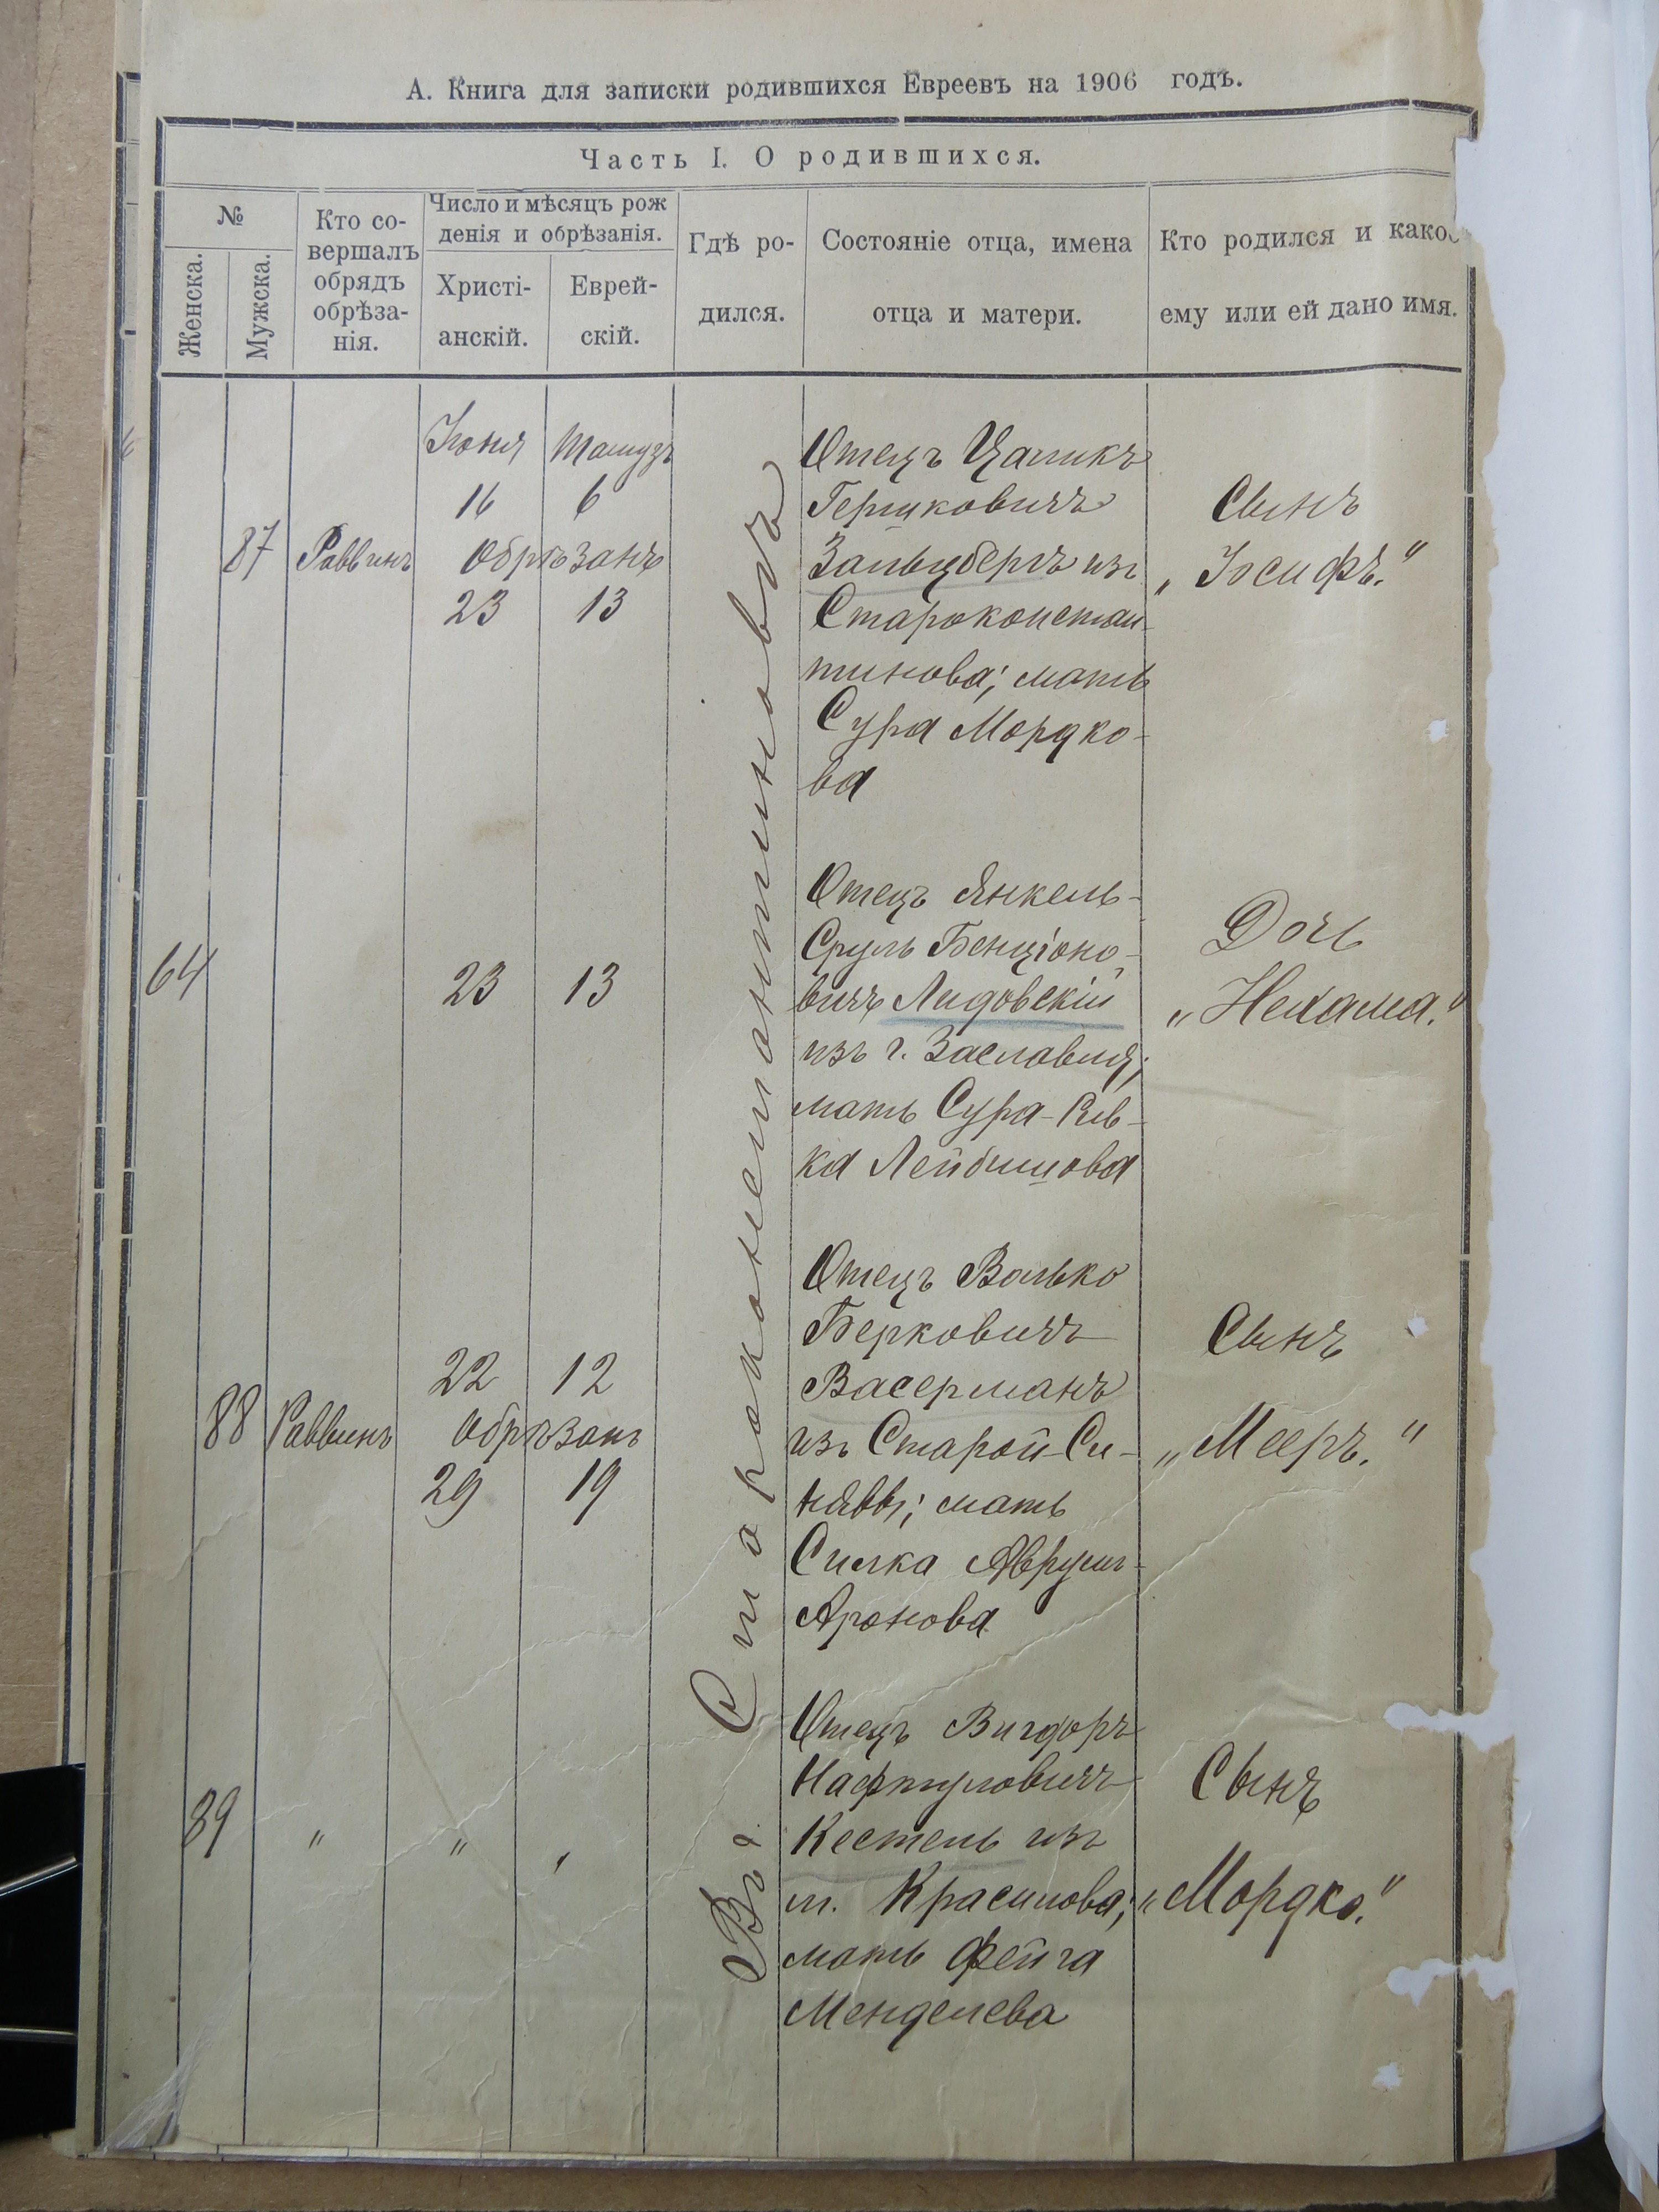 А. Книга для записки родившихся Евреевъ на 1906 годъ.
Часть I. О родившихся.
№
Женска.
Мужска.
Кто со-
вершалъ
обрядъ
обрѣза-
нія.
Число и мѣсяцъ рож
денія и обрѣзанія.
Христі-
анскій.
Еврей-
скій.
Гдѣ ро-
дился.
Состояніе отца, имена
отца и матери.
Кто родился и какое
ему или ей дано имя.
Въ г. Староконстантиновѣ
87
Раввинъ
Іюня Тамузъ
16 6
Обрѣзанъ
23 13
Отецъ Цаликъ
Гершковичъ
Зальцбергъ изъ
Староконстан-
тинова; мать
Сура Мордко-
ва
Сынъ
„Іосифъ."
64
23 13
Отецъ Янкель-
Сруль Бенціоно-
вичъ Лидовскій
изъ г. Заславля;
мать Сура-Рив-
ка Лейбишова
Дочь
„Нехама."
88
Раввинъ
22 12
Обрѣзанъ
29 19
Отецъ Волько
Берковичъ
Васерманъ
изъ Старой-Си-
нявы; мать
Силка Аврум-
Аронова
Сынъ
„Мееръ."
89
" " "
Отецъ Вигдоръ
Нафтуловичъ
Кестель изъ
м. Красилова;
мать Фейга
Менделева
Сынъ
„Мордко."